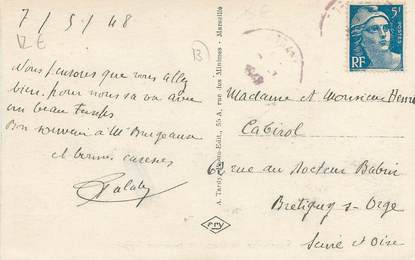 7/5/48
Nous pensons que vous allez
bien, pour nous sa va avec
un beau temps
Bon souvenir à Mr
et bonnes caresses
A. Tardy, Edit., 55 A, rue des Minimes - Marseille
5F
POSTES
RF
Madame et Monsieur Henri
Cabirol
62 rue du Docteur Babin
Bretigny s- Orge
Seine et Oise